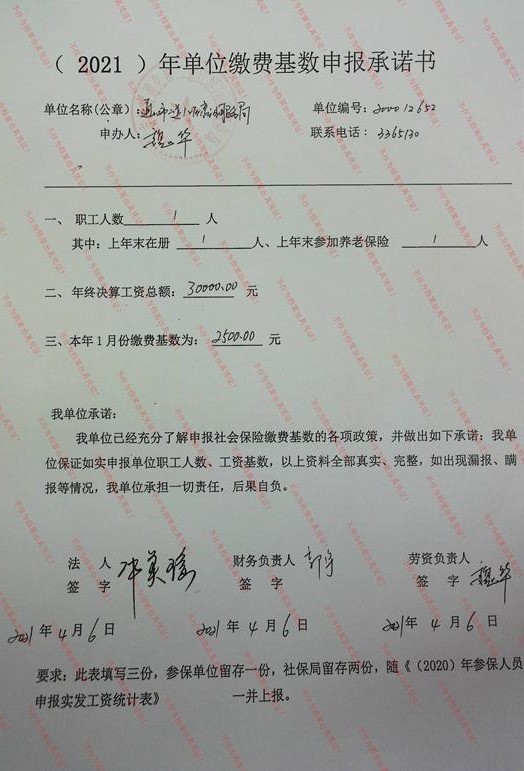 （ 2021 ）年单位缴费基数申报承诺书
单位名称(公章)： 单位编号：200012652
申办人： 华 联系电话： 3365130
一、 职工人数 1 人
其中：上年末在册 1 人、上年末参加养老保险 1 人
二、 年终决算工资总额：30000.00 元
三、本年1月份缴费基数为：2500.00 元
我单位承诺：
我单位已经充分了解申报社会保险缴费基数的各项政策，并做出如下承诺：我单
位保证如实申报单位职工人数、工资基数，以上资料全部真实、完整，如出现漏报、瞒
报等情况，我单位承担一切责任，后果自负。
法 人 财务负责人 劳资负责人
签 字 签 字 签 字 华
2021年4月6日 2021年4月6日 2021年4月6日
要求：此表填写三份，参保单位留存一份，社保局留存两份，随《（2020）年参保人员
申报实发工资统计表》 一并上报。